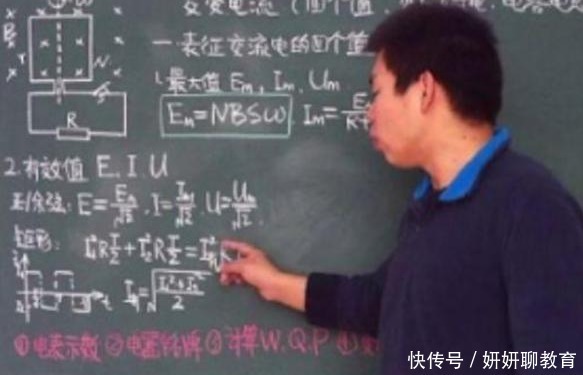 交变电流(四个值
一.表征交流电的四个值
1.最大值 Em, Im, Um
Em=NBSω Im=
B
N
R
2.有效值 E.I.U
正余弦: E=Em/√2, I=Im/√2, U=Um/√2
矩形: I₁²R T/2 + I₂²R T/2 = I
t
I =√((I₁²+I₂²)/2)
①电表示数 ②电器铭牌 ③计算W.Q.P ④
快传号 / 妍妍聊教育